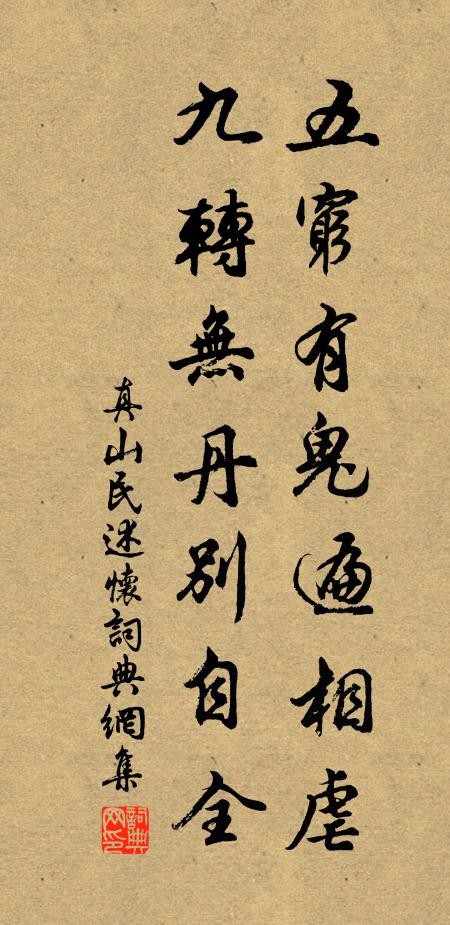 五窮有鬼遍相虐
九轉無丹別自全
真山民述懷詞典網集
詞典網印